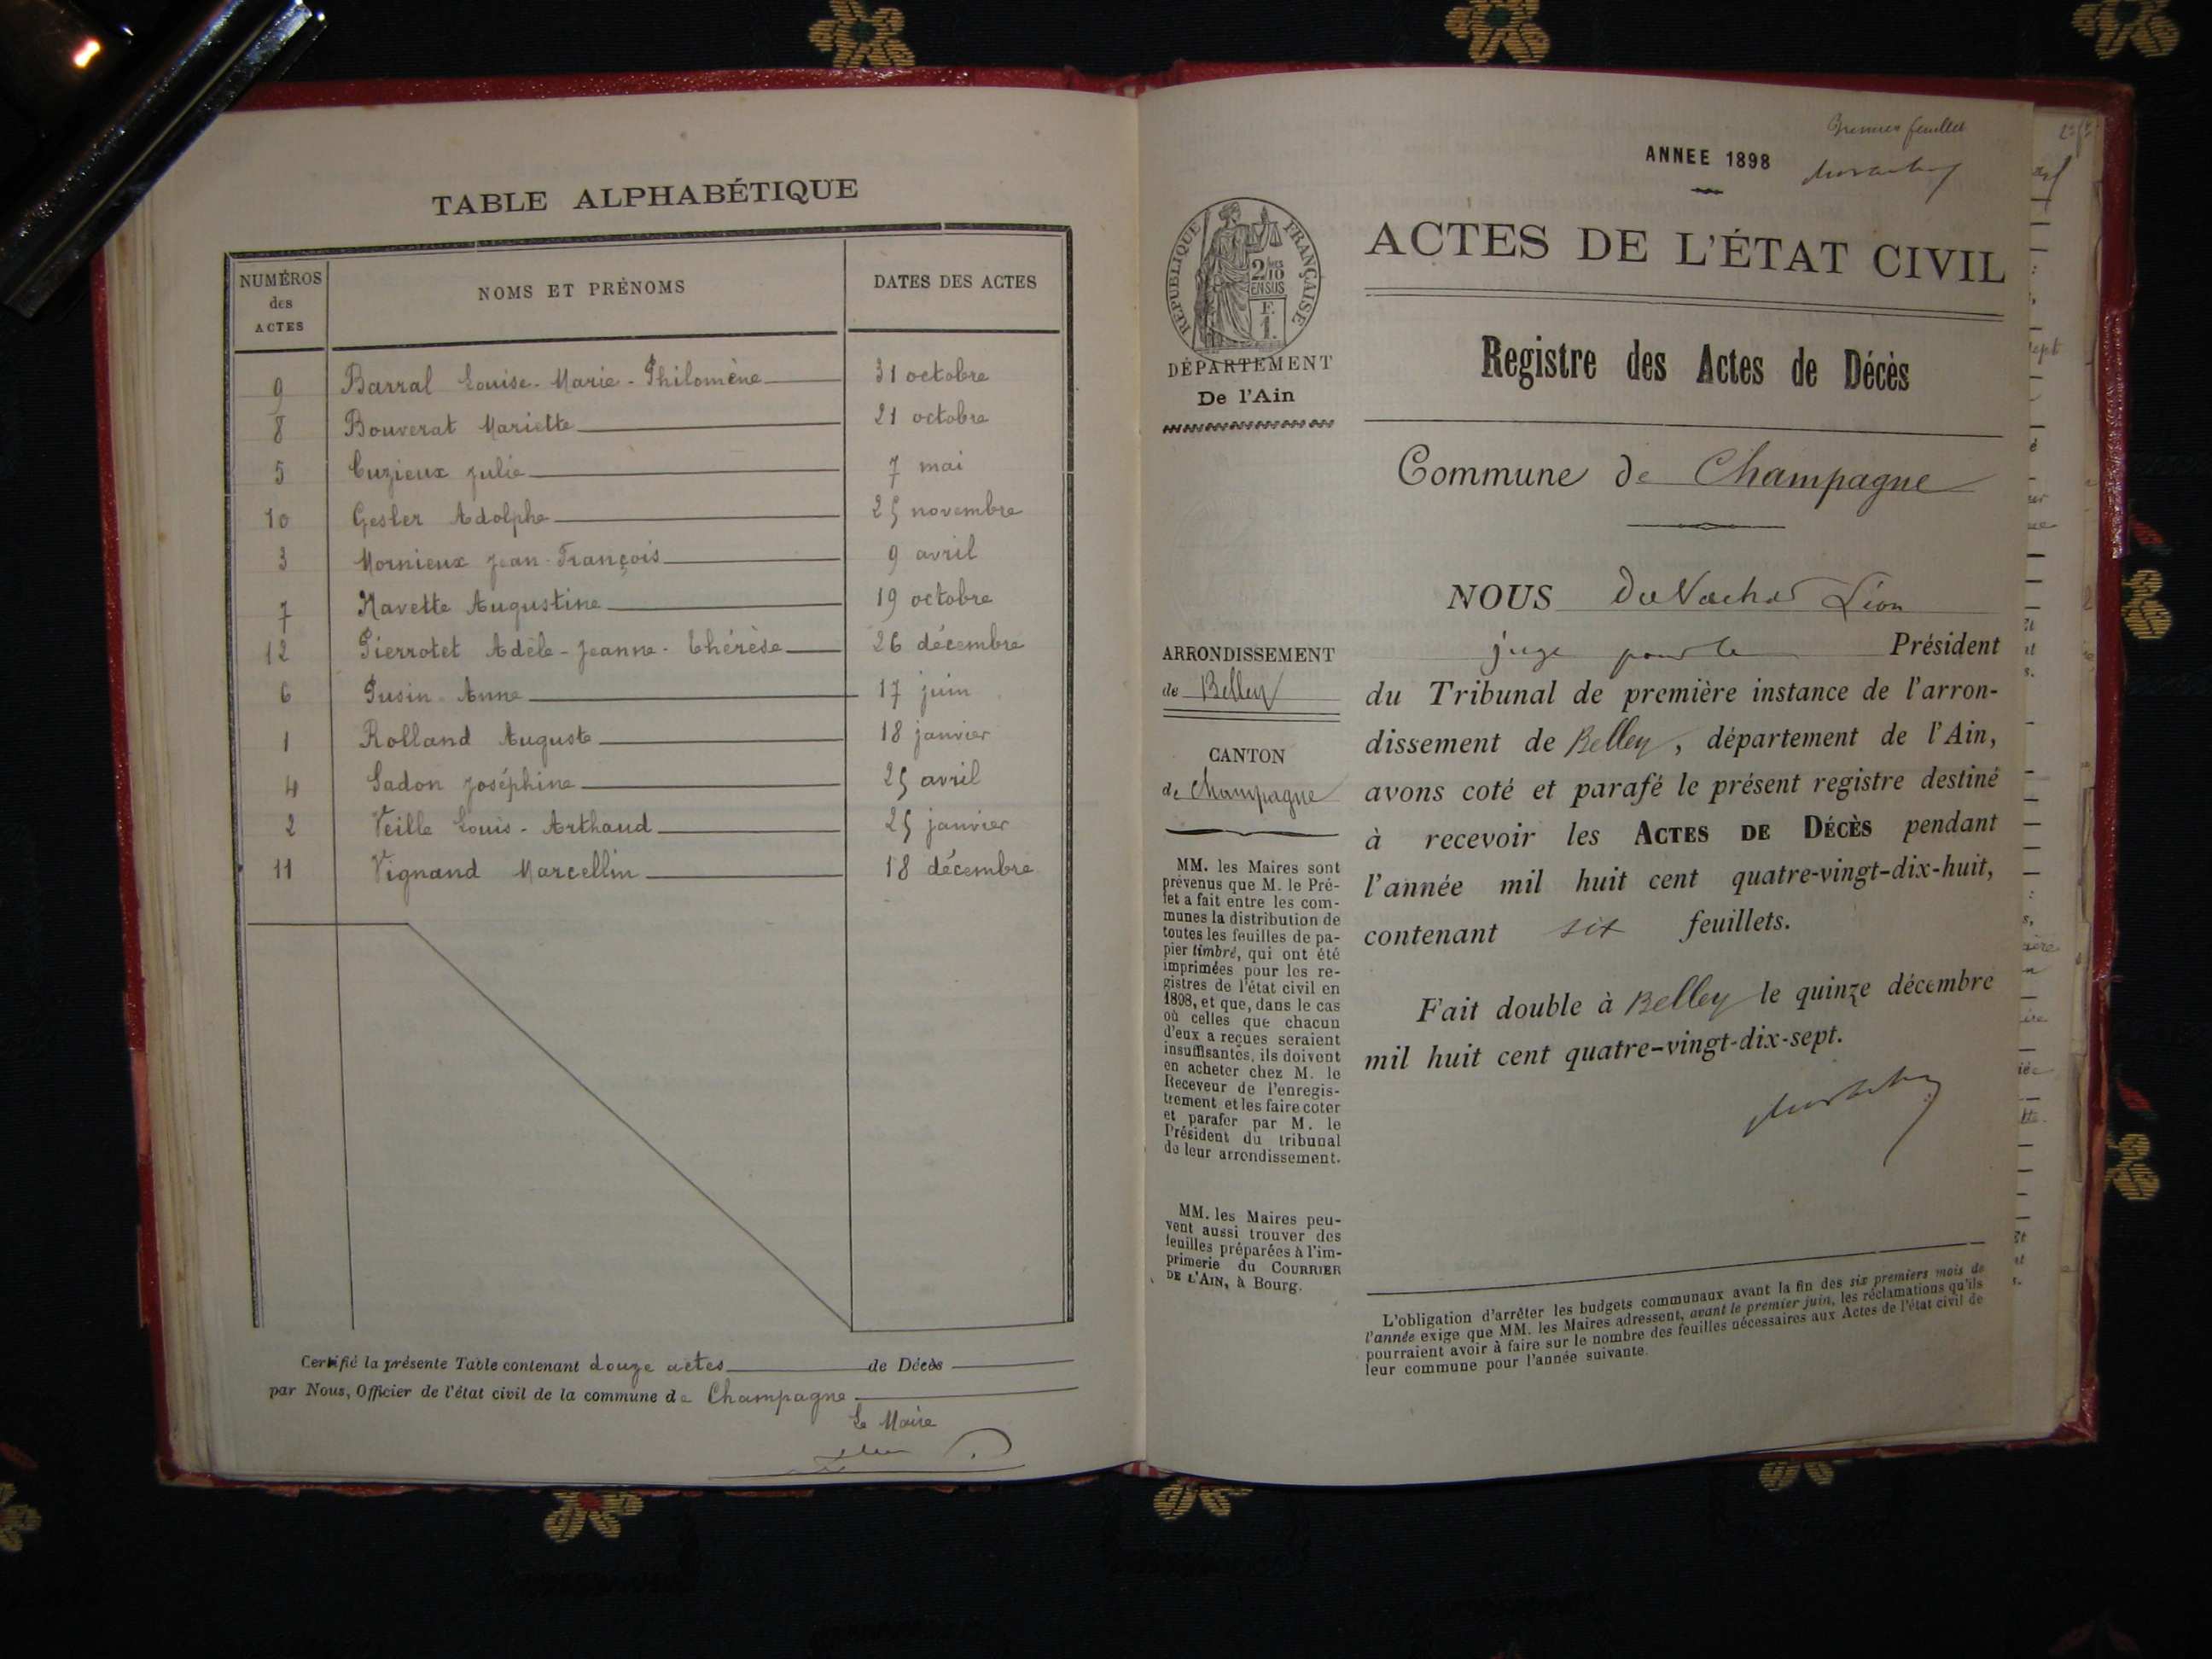 TABLE ALPHABÉTIQUE
NUMÉROS des ACTES
NOMS ET PRÉNOMS
DATES DES ACTES
9 Barral Louise-Marie-Philomène 31 octobre
8 Bouverat Mariette 21 octobre
5 Cuzieux Julie 7 mai
10 Gesler Adolphe 25 novembre
3 Mornieux Jean-François 9 avril
7 Navette Augustine 19 octobre
12 Pierrotet Adèle-Jeanne-Thérèse 26 décembre
6 Pusin Anne 17 juin
1 Rolland Auguste 18 janvier
4 Sadon Joséphine 25 avril
2 Veille Louis-Arthaud 25 janvier
11 Vignand Marcellin 18 décembre
Certifié la présente Table contenant douze actes de Décès
par Nous, Officier de l'état civil de la commune de Champagne
Le Maire
Premier feuillet
ANNEE 1898
RÉPUBLIQUE FRANÇAISE
2/10 EN SUS
F. 1.
DÉPARTEMENT
De l'Ain
ACTES DE L'ÉTAT CIVIL
Registre des Actes de Décès
Commune de Champagne
ARRONDISSEMENT
de Belley
CANTON
de Champagne
MM. les Maires sont
prévenus que M. le Pré-
fet a fait entre les com-
munes la distribution de
toutes les feuilles de pa-
pier timbré, qui ont été
imprimées pour les re-
gistres de l'état civil en
1898, et que, dans le cas
où celles que chacun
d'eux a reçues seraient
insuffisantes, ils doivent
en acheter chez M. le
Receveur de l'enregis-
trement et les faire coter
et parafer par M. le
Président du tribunal
de leur arrondissement.
MM. les Maires peu-
vent aussi trouver des
feuilles préparées à l'im-
primerie du COURRIER
DE L'AIN, à Bourg.
NOUS DuVachat Léon
juge pour le Président
du Tribunal de première instance de l'arron-
dissement de Belley, département de l'Ain,
avons coté et parafé le présent registre destiné
à recevoir les ACTES DE DÉCÈS pendant
l'année mil huit cent quatre-vingt-dix-huit,
contenant six feuillets.
Fait double à Belley le quinze décembre
mil huit cent quatre-vingt-dix-sept.
L'obligation d'arrêter les budgets communaux avant la fin des six premiers mois de
l'année exige que MM. les Maires adressent, avant le premier juin, les réclamations qu'ils
pourraient avoir à faire sur le nombre des feuilles nécessaires aux Actes de l'état civil de
leur commune pour l'année suivante.